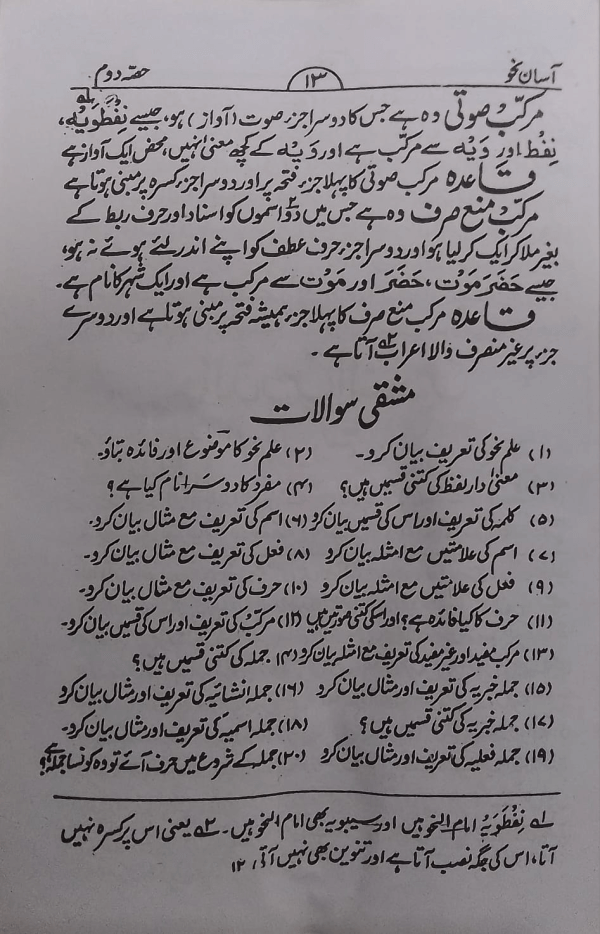 آسان نحو ۱۳ حصّہ دوم
مرکّب صوتی وہ ہے جس کا دوسرا جزء صوت (آواز) ہو، جیسے نِفْطَوَیْہِ لہ،
نِفْط اور وَیْہ سے مرکب ہے اور وَیْہ کے کچھ معنیٰ نہیں، محض ایک آواز ہے
قاعدہ مرکب صوتی کا پہلا جزء فتحہ پر اور دوسرا جزء کسرہ پر مبنی ہوتا ہے
مرکّب منع صرف وہ ہے جس میں دوٚ اسموں کو اسناد اور حرف ربط کے
بغیر ملا کر ایک کر لیا ہو اور دوسرا جزء حرف عطف کو اپنے اندر لئے ہوئے نہ ہو،
جیسے حَضَرَ مَوْت، حَضَرَ اور مَوْت سے مرکب ہے اور ایک شہر کا نام ہے۔
قاعدہ مرکب منع صرف کا پہلا جزء ہمیشہ فتحہ پر مبنی ہوتا ہے اور دوسرے
جزء پر غیر منصرف والا اعراب ۲؎ آتا ہے۔
مشقی سوالات
(۱) علم نحو کی تعریف بیان کرو۔ (۲) علم نحو کا موضوع اور فائدہ بتاؤ۔
(۳) معنیٰ دار لفظ کی کتنی قسمیں ہیں؟ (۴) مفرد کا دوسرا نام کیا ہے؟
(۵) کلمہ کی تعریف اور اس کی قسمیں بیان کرو (۶) اسم کی تعریف مع مثال بیان کرو۔
(۷) اسم کی علامتیں مع امثلہ بیان کرو (۸) فعل کی تعریف مع مثال بیان کرو۔
(۹) فعل کی علامتیں مع امثلہ بیان کرو (۱۰) حرف کی تعریف مع مثال بیان کرو۔
(۱۱) حرف کا کیا فائدہ ہے؟ اور اسکی کتنی صورتیں ہیں (۱۲) مرکّب کی تعریف اور اس کی قسمیں بیان کرو۔
(۱۳) مرکب مفید اور غیر مفید کی تعریف مع امثلہ بیان کرو (۱۴) جملہ کی کتنی قسمیں ہیں؟
(۱۵) جملہ خبریہ کی تعریف اور مثال بیان کرو (۱۶) جملہ انشائیہ کی تعریف اور مثال بیان کرو
(۱۷) جملہ خبریہ کی کتنی قسمیں ہیں؟ (۱۸) جملہ اسمیہ کی تعریف اور مثال بیان کرو۔
(۱۹) جملہ فعلیہ کی تعریف اور مثال بیان کرو (۲۰) جملہ کے شروع میں حرف آئے تو وہ کونسا جملہ ہے؟
لہ نِفْطَوَیْہِ امام النحو ہیں اور سیبویہ بھی امام النحو ہیں۔ ۲؎ یعنی اس پر کسرہ نہیں
آتا، اس کی جگہ نصب آتا ہے اور تنوین بھی نہیں آتی ۱۲